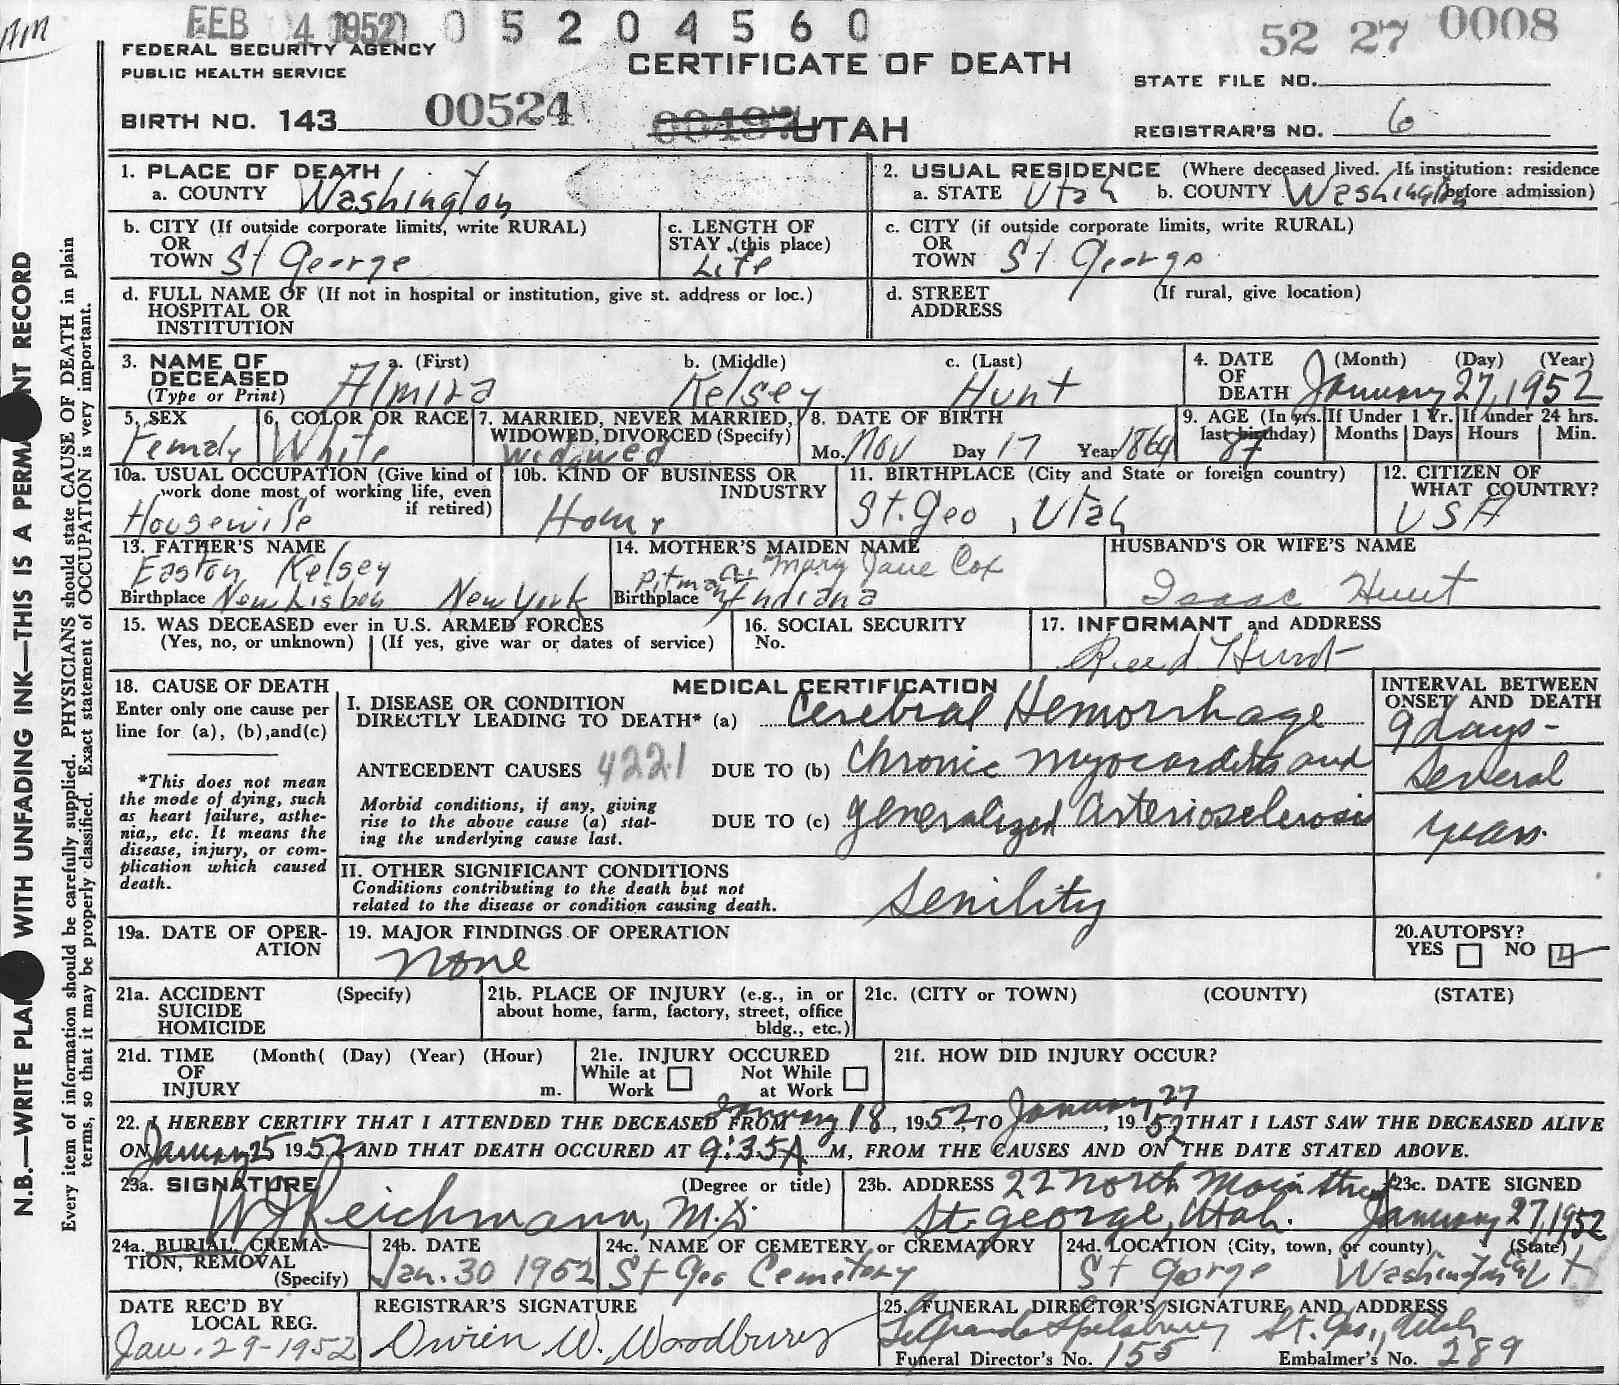 AM
FEB 4 1952 0 5 2 0 4 5 6 0
52 27 0008
FEDERAL SECURITY AGENCY
PUBLIC HEALTH SERVICE
CERTIFICATE OF DEATH
STATE FILE NO.
BIRTH NO. 143 00524
UTAH
REGISTRAR'S NO. 6
N.B.—WRITE PLAI WITH UNFADING INK—THIS IS A PERMA NT RECORD
Every item of information should be carefully supplied. PHYSICIANS should state CAUSE OF DEATH in plain
terms, so that it may be properly classified. Exact statement of OCCUPATION is very important.
1. PLACE OF DEATH
a. COUNTY Washington
2. USUAL RESIDENCE (Where deceased lived. If institution: residence
a. STATE Utah b. COUNTY Washington before admission)
b. CITY (If outside corporate limits, write RURAL)
OR
TOWN St George
c. LENGTH OF
STAY (this place)
Life
c. CITY (if outside corporate limits, write RURAL)
OR
TOWN St George
d. FULL NAME OF (If not in hospital or institution, give st. address or loc.)
HOSPITAL OR
INSTITUTION
d. STREET (If rural, give location)
ADDRESS
3. NAME OF
DECEASED
(Type or Print)
a. (First) b. (Middle) c. (Last)
Almira Kelsey Hunt
4. DATE (Month) (Day) (Year)
OF
DEATH January 27, 1952
5. SEX
Female
6. COLOR OR RACE
White
7. MARRIED, NEVER MARRIED,
WIDOWED, DIVORCED (Specify)
Widowed
8. DATE OF BIRTH
Mo. Nov Day 17 Year 1864
9. AGE (In yrs.
last birthday)
87
If Under 1 Yr.
Months Days
If under 24 hrs.
Hours Min.
10a. USUAL OCCUPATION (Give kind of
work done most of working life, even
if retired)
Housewife
10b. KIND OF BUSINESS OR
INDUSTRY
Home
11. BIRTHPLACE (City and State or foreign country)
St. Geo, Utah
12. CITIZEN OF
WHAT COUNTRY?
USA
13. FATHER'S NAME
Easton Kelsey
Birthplace New Lisbon New York
14. MOTHER'S MAIDEN NAME
Mary Jane Cox
Birthplace Indiana
HUSBAND'S OR WIFE'S NAME
Isaac Hunt
15. WAS DECEASED ever in U.S. ARMED FORCES
(Yes, no, or unknown) (If yes, give war or dates of service)
16. SOCIAL SECURITY
No.
17. INFORMANT and ADDRESS
Reed Hunt
18. CAUSE OF DEATH
Enter only one cause per
line for (a), (b), and (c)
*This does not mean
the mode of dying, such
as heart failure, asthe-
nia,, etc. It means the
disease, injury, or com-
plication which caused
death.
MEDICAL CERTIFICATION
I. DISEASE OR CONDITION
DIRECTLY LEADING TO DEATH* (a) Cerebral Hemorrhage
ANTECEDENT CAUSES 4221 DUE TO (b) Chronic myocarditis and
Morbid conditions, if any, giving
rise to the above cause (a) stat-
ing the underlying cause last.
DUE TO (c) generalized arteriosclerosis
INTERVAL BETWEEN
ONSET AND DEATH
9 days-
Several
years.
II. OTHER SIGNIFICANT CONDITIONS
Conditions contributing to the death but not
related to the disease or condition causing death.
Senility
19a. DATE OF OPER-
ATION
19. MAJOR FINDINGS OF OPERATION
None
20. AUTOPSY?
YES NO
21a. ACCIDENT (Specify)
SUICIDE
HOMICIDE
21b. PLACE OF INJURY (e.g., in or
about home, farm, factory, street, office
bldg., etc.)
21c. (CITY or TOWN) (COUNTY) (STATE)
21d. TIME (Month( (Day) (Year) (Hour)
OF
INJURY m.
21e. INJURY OCCURED
While at Not While
Work at Work
21f. HOW DID INJURY OCCUR?
22. I HEREBY CERTIFY THAT I ATTENDED THE DECEASED FROM January 18, 1952 TO January 27, 1952 THAT I LAST SAW THE DECEASED ALIVE
ON January 25 1952 AND THAT DEATH OCCURED AT 9:35A M, FROM THE CAUSES AND ON THE DATE STATED ABOVE.
23a. SIGNATURE (Degree or title)
W J Reichmann, M.D.
23b. ADDRESS 22 North Main Street
St. George, Utah.
23c. DATE SIGNED
January 27, 1952
24a. BURIAL, CREMA-
TION, REMOVAL
(Specify)
24b. DATE
Jan. 30 1952
24c. NAME OF CEMETERY or CREMATORY
St Geo Cemetery
24d. LOCATION (City, town, or county) (State)
St George Washington Co Ut
DATE REC'D BY
LOCAL REG.
Jan. 29-1952
REGISTRAR'S SIGNATURE
Orrien W. Woodbury
25. FUNERAL DIRECTOR'S SIGNATURE AND ADDRESS
LeGrande Spilsbury St. Geo., Utah
Funeral Director's No. 155 Embalmer's No. 289